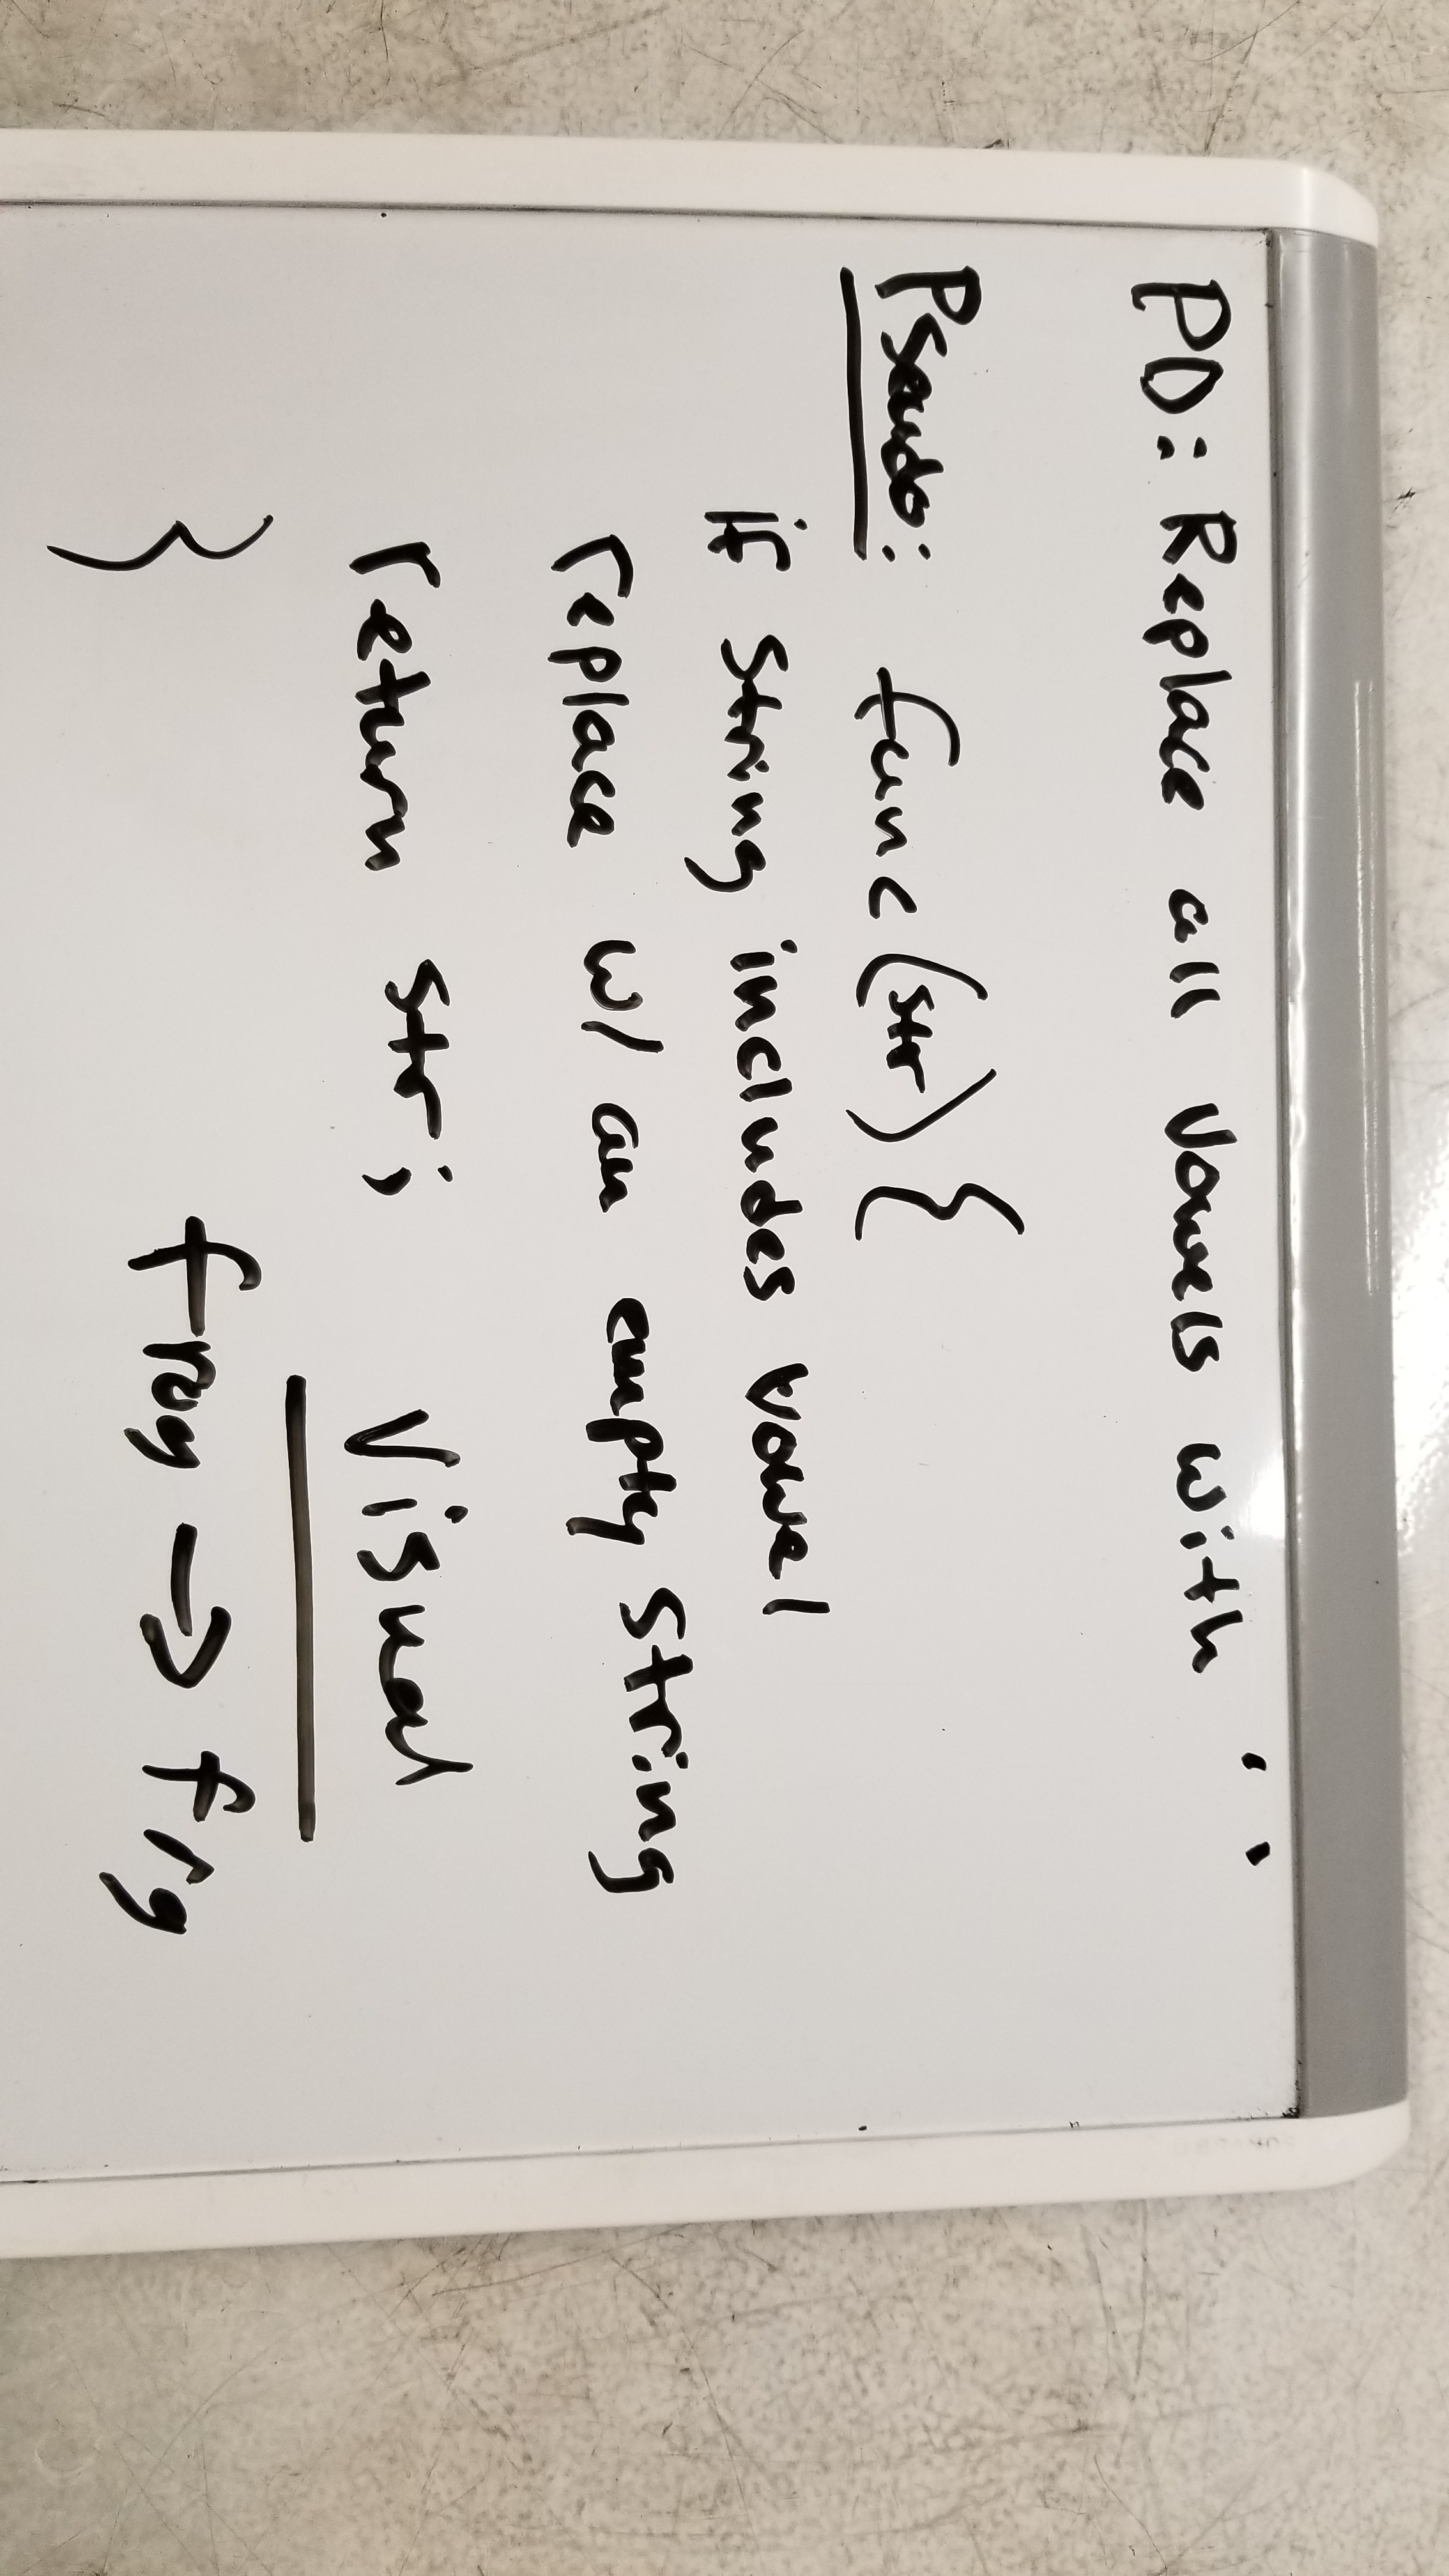 PD: Replace all vowels with ' '
Pseudo: func (str) {
if string includes vowel
replace w/ an empty string
return str;
}
Visual
frog → frg